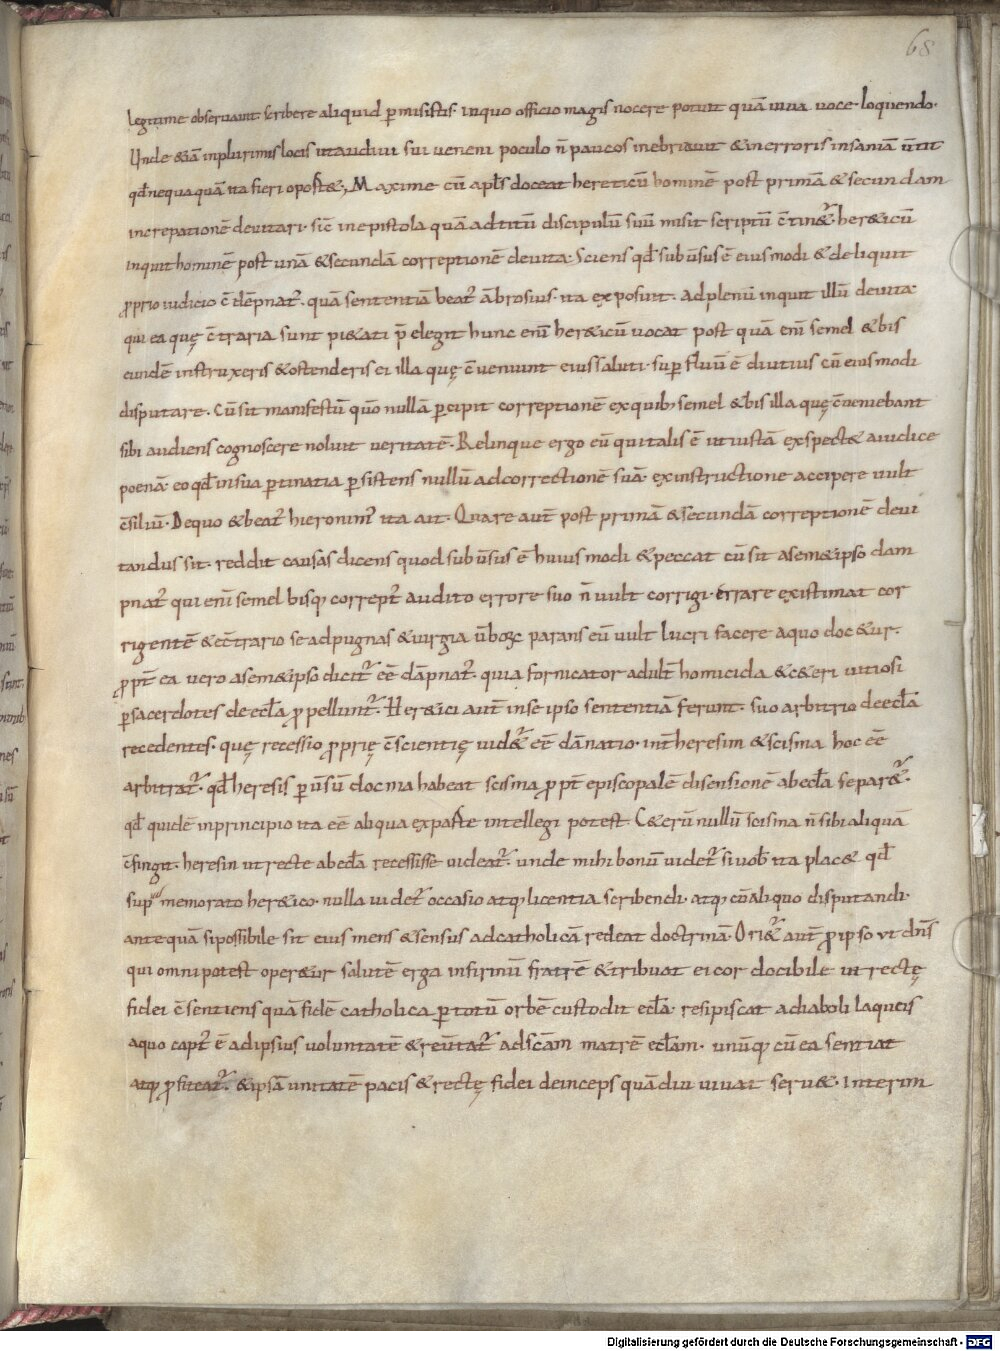 68
legitime obseruauit scribere aliquid p̄misistis. Inquo officio magis nocere potuit quā uiua uoce loquendo.
Unde &iā inplurimis locis utaudiui sui ueneni poculo n̄ paucos inebriauit & inerroris insaniā ūtit
qđ nequaquā ita fieri oport&; Maxime cū apl̄s doceat hereticū hominē post primā & secundam
increpationē deuitari. sic̄ inepistola quā adtitū discipulū suū misit scriptū c̄tin&ˀ. her&icū
inquit hominē post unā & secundā correptionē deuita. Sciens qđ subūsus ē eiusmodi & deliquit
ꝓprio iudicio c̄dēpnatˀ. quā sententiā beatˀ ābrosius ita exposuit. Ad plenū inquit illū deuita
qui ea quę c̄traria sunt pi&ati p̄elegit hunc enī her&icū uocat post quā enī semel & bis
eundē instruxeris & ostenderis ei illa quę c̄ueniunt eius saluti. sup̄fluū ē diutius cū eiusmodi
disputare. Cū sit manifestū quō nullā p̄cipit correptionē ex quib; semel & bis illa quę c̄ueniebant
sibi audiens cognoscere noluit ueritatē. Relinque ergo eū qui talis ē ut iustā exspect& a iudice
poenā. eo qđ insua p̄tinatia p̄sistens nullū adcorrectionē suā ex instructione accipere uult
c̄siliū. De quo & beatˀ hieronimˀ ita ait. Quare autē post primā & secundā correptionē deui
tandus sit. reddit causas dicens quod subūsus ē huius modi & peccat cū sit asem&ipso dam
pnatˀ qui enī semel bisq; correptˀ audito errore suo n̄ uult corrigi. errare existimat cor
rigentē & ec̄trario se ad pugnas & iurgia ūborꝝ parans eū uult lucri facere a quo doc&ur.
ꝓpt̄ ea uero asem&ipso dicitˀ eē dāpnatˀ. quia fornicator adult̄ homicida & c&eri uitiosi
p̄ sacerdotes de ecl̄a ꝓpelluntˀ. Her&ici autē inse ipso sententiā ferunt. suo arbitrio de ecl̄a
recedentes. quę recessio ꝓprię c̄scientię uid&ˀ eē dānatio. int̄ heresim & scisma hoc eē
arbitratˀ. qđ heresis p̄ūsū docma habeat scisma ꝓpt̄ episcopalē disensionē ab ecl̄a separ&ˀ.
qđ quidē inprincipio ita eē aliqua exparte intellegi potest. C&erū nullū scisma n̄ sibi aliquā
c̄fingit heresin ut recte ab ecl̄a recessisse uideatˀ. unde mihi bonū uidetˀ si uob̄ ita plac& qđ
sup̄ memorato her&ico. nulla uidetˀ occasio atq; licentia scribendi. atq; cū aliquo disputandi.
antequā si possibile sit eius mens & sensus ad catholicā redeat doctrinā. Ori&ˀ autē ꝓ ipso ut dn̄s
qui omnipotest oper&ur salutē erga infirmū fratrē & tribuat ei cor docibile ut rectę
fidei c̄sentiens quā fidē catholica p̄ totū orbē custodit ecl̄a. resipiscat a diaboli laqueis
a quo captˀ ē ad ipsius uoluntatē & reūtatˀ ad sc̄am matrē ecl̄am. unūq; cū ea sentiat
atq; ꝓfiteatˀ. & ipsā unitatē pacis & rectę fidei deinceps quā diu uiuat seru&. Interim
Digitalisierung gefördert durch die Deutsche Forschungsgemeinschaft - DFG